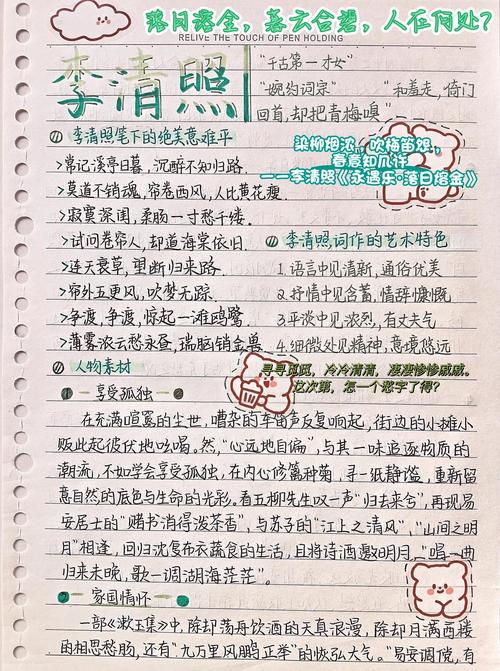 落日落金，暮云合碧，人在何处？
RELIVE THE TOUCH OF PEN HOLDING
李清照
"千古第一才女"
"婉约词宗"
"和羞走，倚门
回首，却把青梅嗅"
染柳烟浓，吹梅笛怨，
春意知几许
——李清照《永遇乐·落日熔金》
① 李清照笔下的绝美意难平
>常记溪亭日暮，沉醉不知归路.
>莫道不销魂，帘卷西风，人比黄花瘦.
>寂寞深闺，柔肠一寸愁千缕.
>试问卷帘人，却道海棠依旧.
>连天衰草，望断归来路.
>帘外五更风，吹梦无踪.
>争渡，争渡，惊起一滩鸥鹭.
>薄雾浓云愁永昼，瑞脑销金兽.
② 李清照词作的艺术特色
1.语言中见清新，通俗优美
2.抒情中见含蓄，情辞慷慨
3.平淡中见浓烈，有丈夫气
4.细微处见精神，意境悠远
寻寻觅觅，冷冷清清，凄凄惨惨戚戚。
这次第，怎一个愁字了得？
人物素材
1 享受孤独
在充满喧嚣的尘世，嘈杂的车笛声反复响起，街边的小摊小
贩此起彼伏地吆喝。然，"心远地自偏"，与其一味追逐物质的
潮流，不如学会享受孤独，在内心修篱种菊，寻一纸静谧，重新留
意自然的底色与生命的光彩。看五柳先生叹一声"归去来兮"，再现易
安居士的"赌书消得泼茶香"，与苏子的"江上之清风"，"山间之明
月"相逢，回归沈复布衣蔬食的生活，且将诗酒邀明月，"唱一曲
归来未晚，歌一调湖海茫茫"。
2 家国情怀
一部《漱玉集》中，除却荡舟饮酒的天真浪漫，除却月满西楼
的相思愁肠，还有"九万里风鹏正举"的恢弘大气。"易安倜傥，有